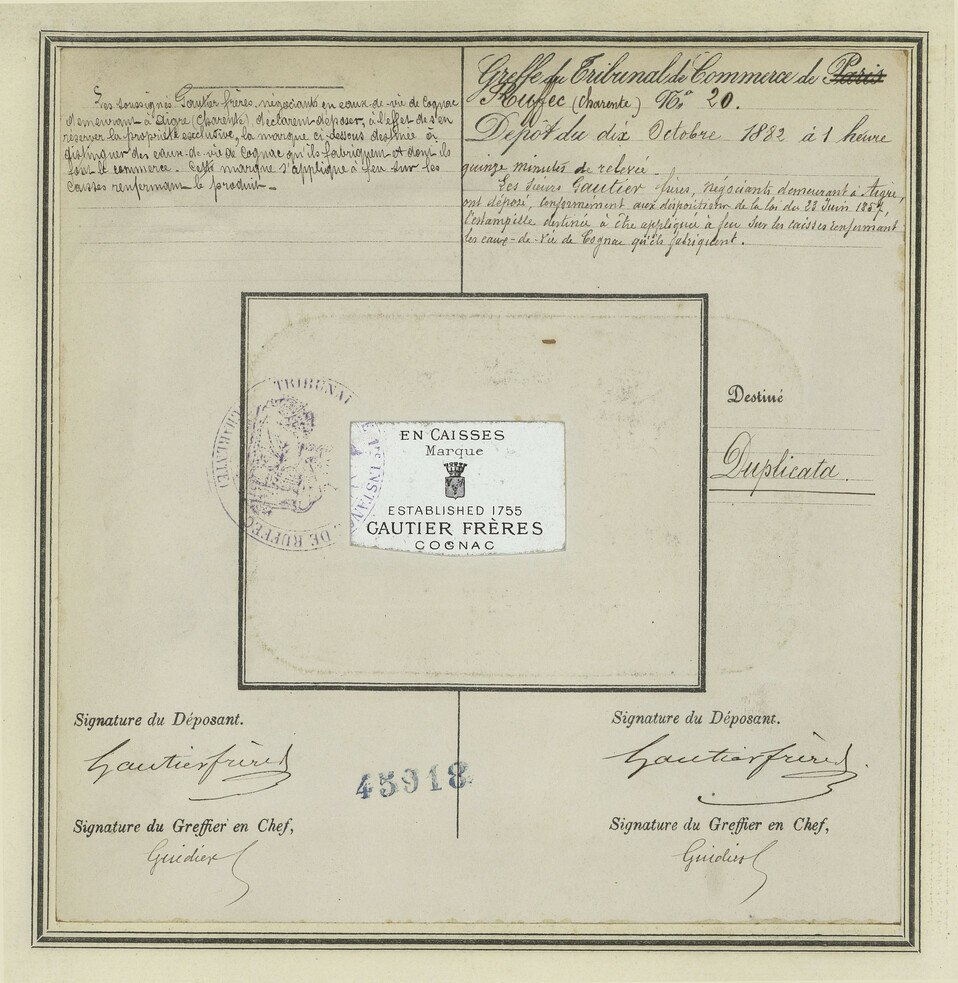 Les soussignés Gautier frères, négociants en eaux-de-vie de Cognac
demeurant à Aigre (Charente) déclarent déposer, à l'effet de s'en
réserver la propriété exclusive, la marque ci-dessous destinée à
distinguer des eaux-de-vie de Cognac qu'ils fabriquent et dont ils
font le commerce. Cette marque s'applique à feu sur les
caisses renfermant le produit.
Greffe du Tribunal de Commerce de Paris
Ruffec (Charente) No 20.
Dépôt du dix Octobre 1882 à 1 heure
quinze minutes de relevée.
Les sieurs Gautier frères, négociants demeurant à Aigre,
ont déposé, conformément aux dispositions de la loi du 23 Juin 1857,
l'estampille destinée à être appliquée à feu sur les caisses renfermant
les eaux-de-vie de Cognac qu'ils fabriquent.
TRIBUNAL
DE 1re INSTANCE
DE RUFFEC
(CHARENTE)
EN CAISSES
Marque
ESTABLISHED 1755
GAUTIER FRÈRES
COGNAC
Destiné
Duplicata.
Signature du Déposant.
Gautier frères
Signature du Greffier en Chef,
Guidier
45918
Signature du Déposant.
Gautier frères.
Signature du Greffier en Chef,
Guidier